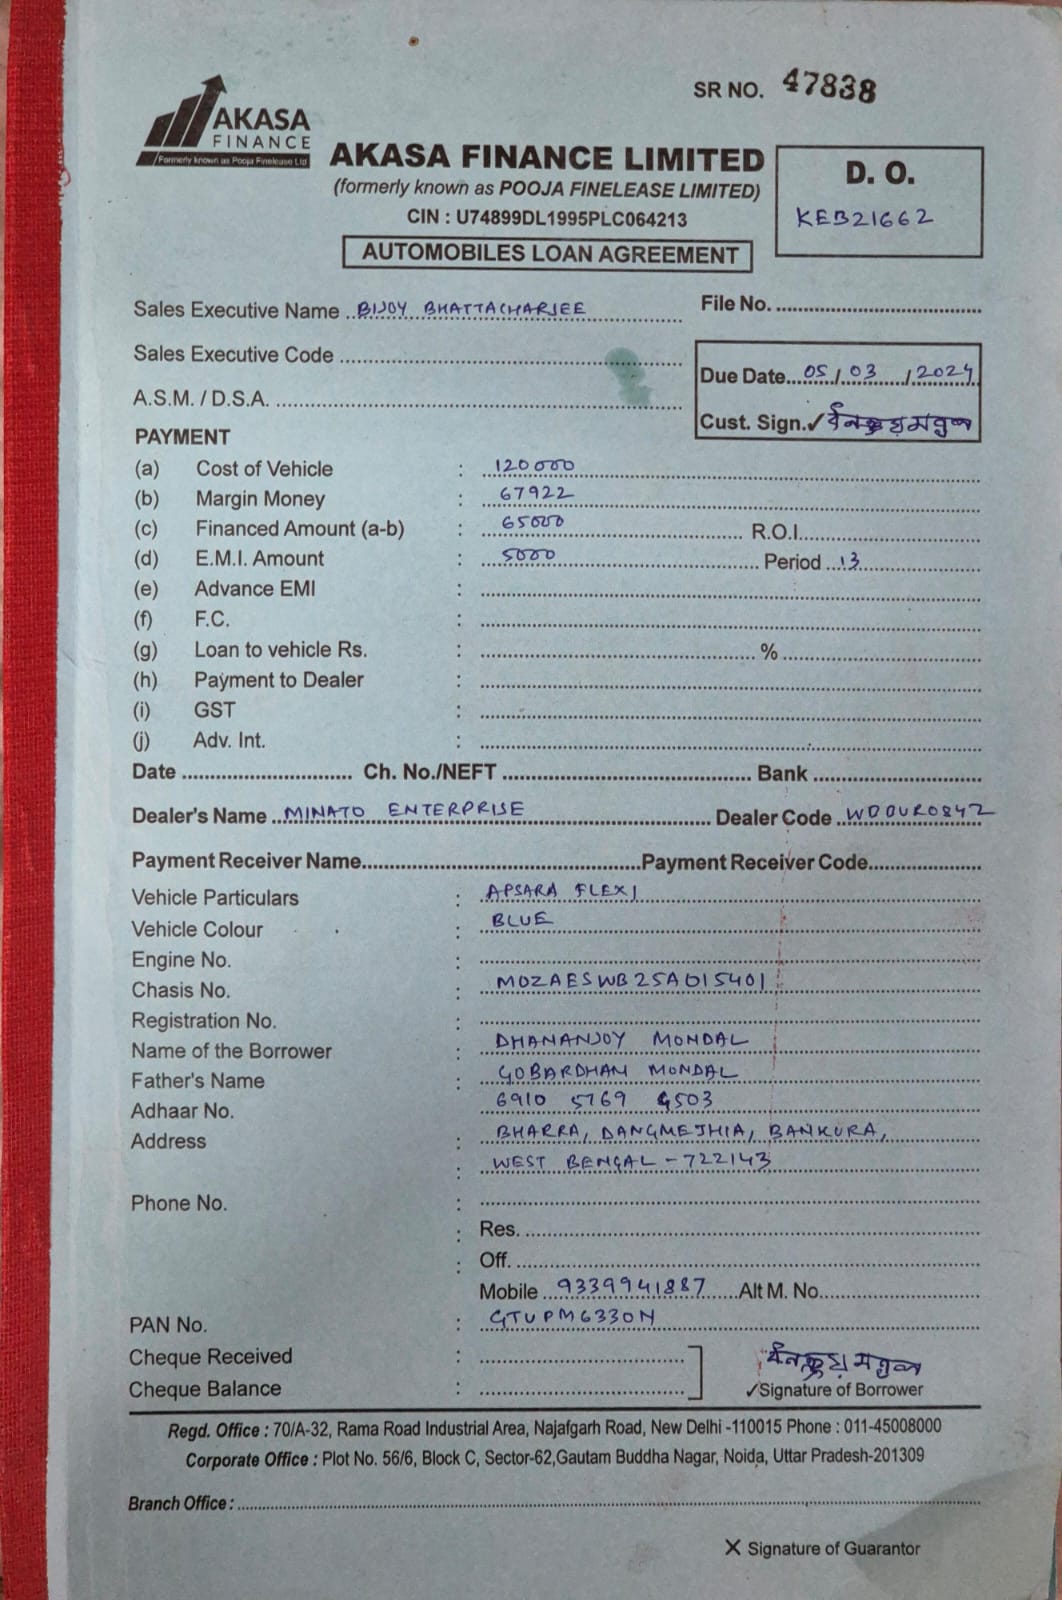 SR NO. 47838
AKASA
FINANCE
Formerly known as Pooja Finelease Ltd
AKASA FINANCE LIMITED
(formerly known as POOJA FINELEASE LIMITED)
CIN : U74899DL1995PLC064213
AUTOMOBILES LOAN AGREEMENT
D. O.
KEB21662
Sales Executive Name BIJOY BHATTACHARJEE
File No.
Sales Executive Code
Due Date 05/03/2024
A.S.M. / D.S.A.
Cust. Sign.✓
PAYMENT
(a) Cost of Vehicle : 120000
(b) Margin Money : 67922
(c) Financed Amount (a-b) : 65000 R.O.I.
(d) E.M.I. Amount : 5000 Period 13
(e) Advance EMI :
(f) F.C. :
(g) Loan to vehicle Rs. : %
(h) Payment to Dealer :
(i) GST :
(j) Adv. Int. :
Date Ch. No./NEFT Bank
Dealer's Name MINATO ENTERPRISE Dealer Code
Payment Receiver Name Payment Receiver Code
Vehicle Particulars : APSARA FLEXI
Vehicle Colour : BLUE
Engine No. :
Chasis No. : MOZAESWB25A015401
Registration No. :
Name of the Borrower : DHANANJOY MONDAL
Father's Name : GOBARDHAN MONDAL
Adhaar No. 6910 5769 4503
Address : BHARRA, DANGMEJHIA, BANKURA,
: WEST BENGAL - 722143
Phone No. :
: Res.
: Off.
Mobile 9339941887 Alt M. No.
PAN No. : GTUPM6330N
Cheque Received :
Cheque Balance :
✓Signature of Borrower
Regd. Office : 70/A-32, Rama Road Industrial Area, Najafgarh Road, New Delhi -110015 Phone : 011-45008000
Corporate Office : Plot No. 56/6, Block C, Sector-62,Gautam Buddha Nagar, Noida, Uttar Pradesh-201309
Branch Office :
X Signature of Guarantor